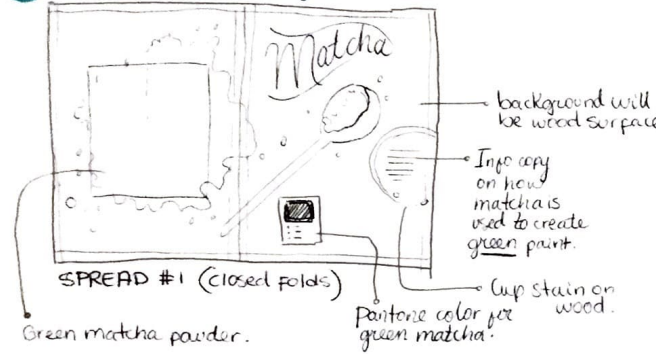 Matcha
background will
be wood surface
Info copy
on how
matcha is
used to create
green paint.
SPREAD #1 (closed folds)
Cup stain on
wood.
Pantone color for
green matcha.
Green matcha powder.